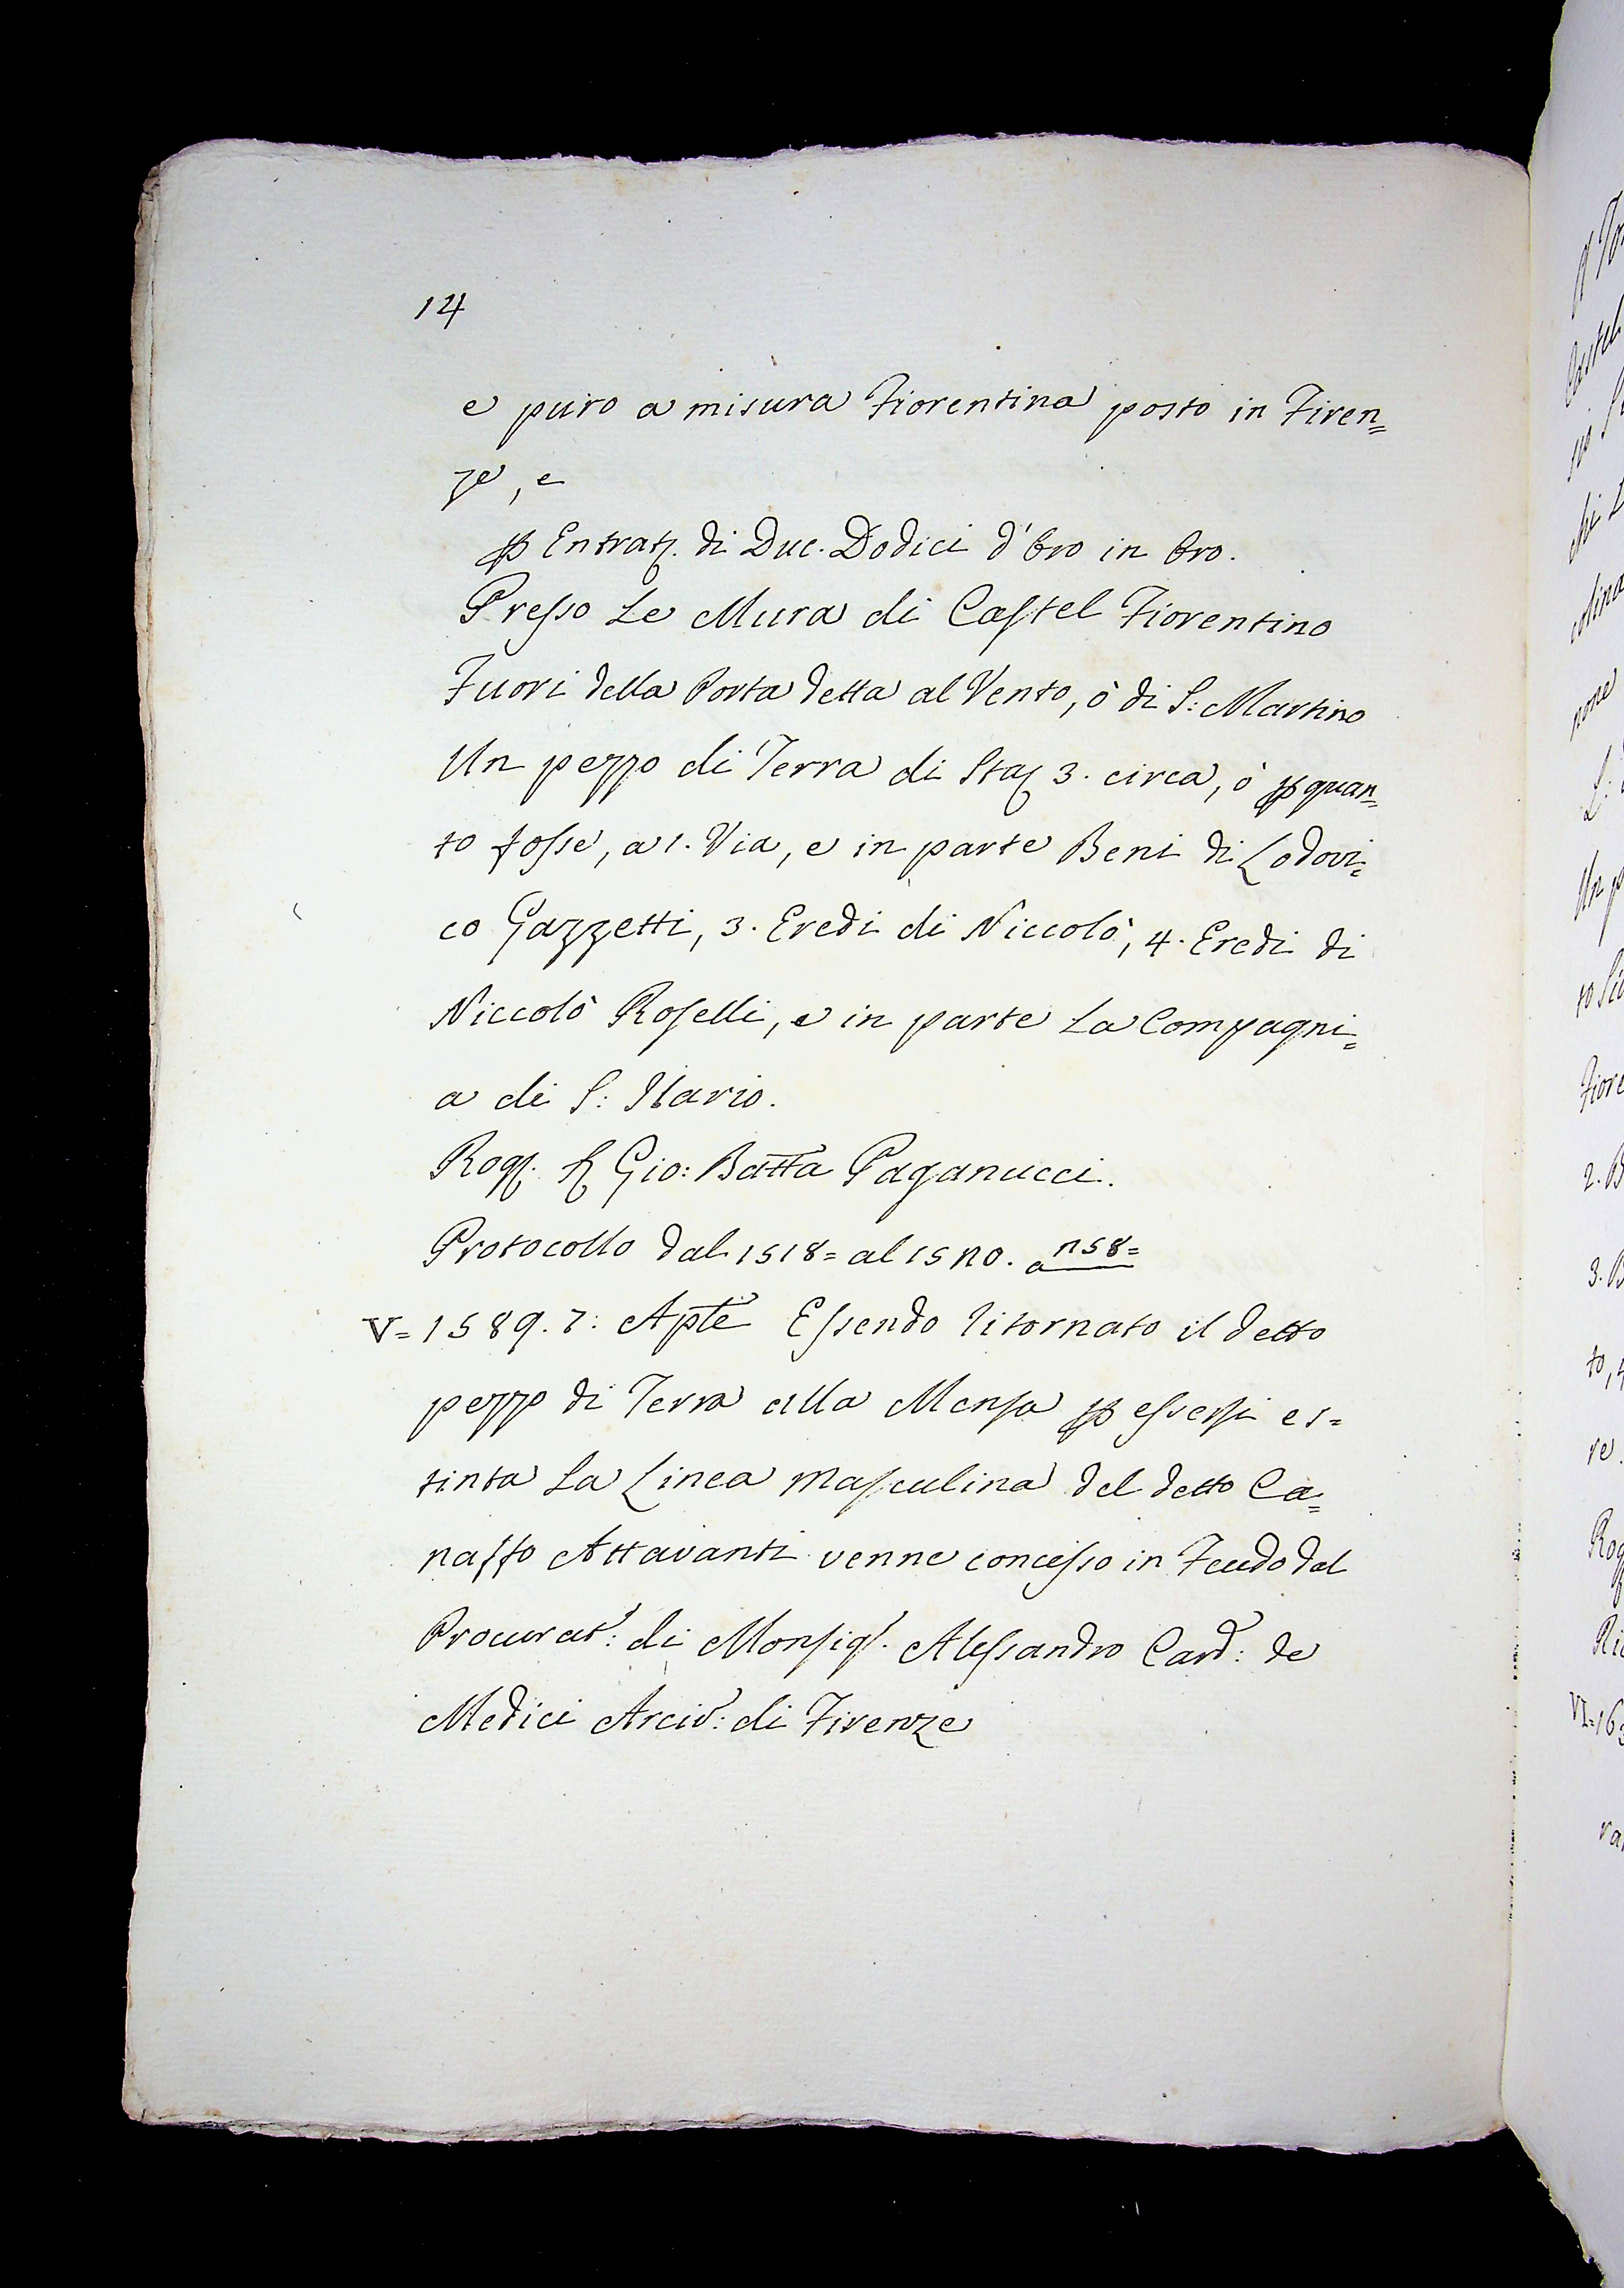 14
e puro a misura Fiorentina posto in Firen=
ze, e
p Entrat. di Duc. Dodici d'Oro in Oro.
Presso Le Mura di Castel Fiorentino
Fuori della Porta detta al Vento, ò di S: Martino
Un pezzo di Terra di Sta 3. circa, ò p quan=
to fosse, a 1. Via, e in parte Beni di Lodovi=
co Gazzetti, 3. Eredi di Niccolò, 4. Eredi di
Niccolò Roselli, e in parte La Compagni=
a di S: Ilario.
Rog. Gio: Batta Paganucci.
Protocollo dal 1518= al
V= 1589. 7: Essendo ritornato il detto
pezzo di Terra alla Mensa p essersi es=
tinta La Linea Masculina del detto Ca=
nasso Attavanti venne concesso in Feudo dal
Procurat: di Monsig. Alessandro Card: de
Medici Arciv: di Firenze